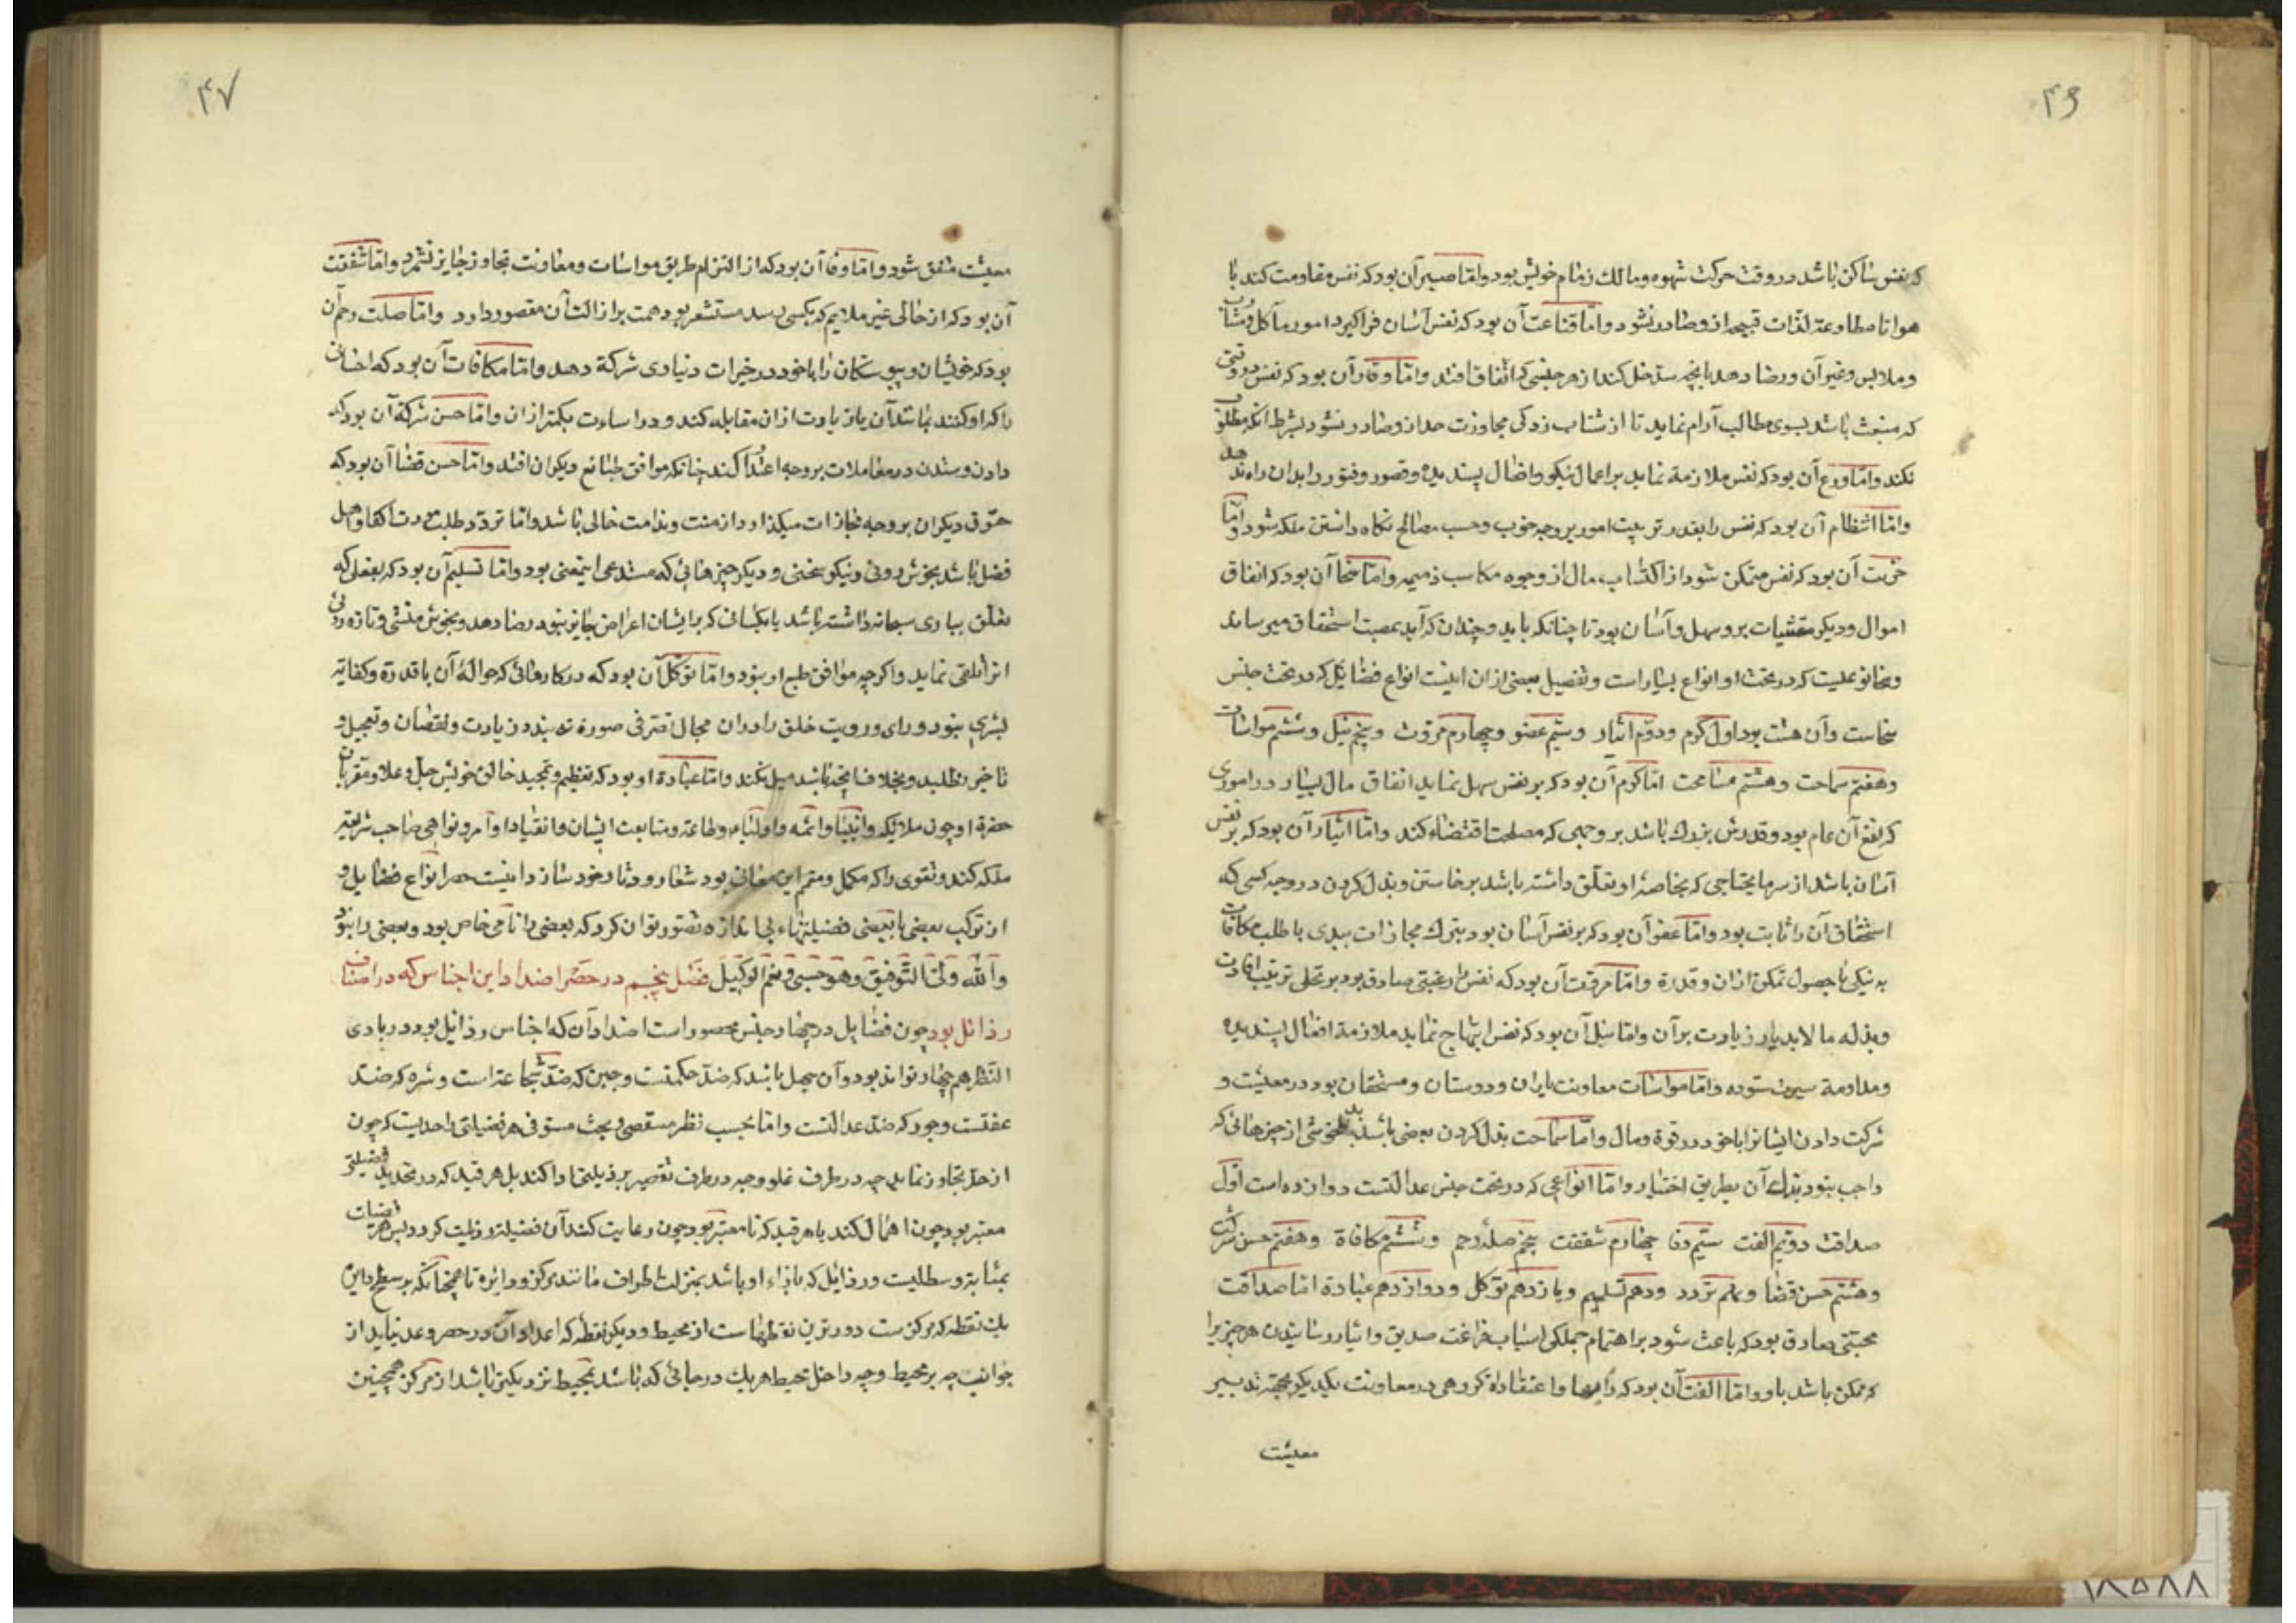 ۴۶
که نفس ساکن باشد در وقت حرکت شهوه و مالک زمام خویش بود و امّا صبر آن بود که نفس مقاومت کند با
هوا تا مطاوعة لذات قبیحه از و صادر نشود و امّا قناعت آن بود که نفس آسان فراگیرد امور مآکل و مشارب
و ملابس و غیر آن و رضا دهد بآنچه سد خلل کند از هر جنسی که اتّفاق افتد و امّا وقار آن بود که نفس در وقتی
که منبعث باشد بسوی مطالب آرام نماید تا از شتاب زدکی مجاوزت حد از و صادر نشود بشرط آنکه مطلوب
نکند و امّا ورع آن بود که نفس ملازمة نماید بر اعمال نیکو و افعال پسندیده و قصور و فتور را بدان راه ندهد
و امّا انتظام آن بود که نفس را بقدر ترتیب امور بر وجه خوب و حسب مصالح نکاه داشتن ملکه شود و امّا
حرّیت آن بود که نفس متمکن شود از اکتساب مال از وجوه مکاسب ذمیمه و امّا سخا آن بود که انفاق
اموال و دیکر مقتنیات برو سهل و آسان بود تا چنانکه باید و چندان که آید بمصبّ استحقاق میرساند
و سخا نوعیست که در تحت او انواع بسیار است و تفصیل بعضی از ان اینست انواع فضایل که در تحت جنس
سخاست و آن هشت بود اول کرم و دوّم ایثار و سیّم عفو و چهارم مروّت و پنجم نیل و ششم مواسات
و هفتم سماحت و هشتم مسامحت امّا کرم آن بود که بر نفس سهل نماید انفاق مال بسیار در اموری
که نفع آن عام بود و قدرش بزرک باشد بر وجهی که مصلحت اقتضاء کند و امّا ایثار آن بود که بر نفس
آسان باشد از سر مایحتاجی که بخاصهٔ او تعلّق داشته باشد برخاستن و بذل کردن در وجه کسی که
استحقاق آن را ثابت بود و امّا عفو آن بود که بر نفس آسان بود بترک مجازات ببدی یا طلب مکافات
به نیکی با حصول تمکن از ان و قدرة و امّا مروّت آن بود که نفس را رغبتی صادق بود بر تحلی بزینت افادت
و بذل ما لابد یا زیادت بر آن و امّا نیل آن بود که نفس ابتهاج نماید ملازمة افعال پسندیده
و مداومة سیرت ستوده و امّا مواسات معاونت یاران و دوستان و مستحقان بود در معیشت و
شرکت دادن ایشانرا با خود در قوة و مال و امّا سماحت بذل کردن بعضی باشد بدلخوشی از چیزهائی که
واجب نبود بذل آن بطریق اختیار و امّا انواعی که در تحت جنس عدالتست دوازده است اوّل
صداقت دوّیم الفت سیّم وفا چهارم شفقت پنجم صلهٔ رحم و ششم مکافاة و هفتم حسن شرکت
و هشتم حسن قضا و نهم تودد و دهم تسلیم و یازدهم توکل و دوازدهم عبادة امّا صداقت
محبتّی صادق بود که باعث شود بر اهتمام جملکی اسباب فراغت صدیق و ایثار رسانیدن هر چیز برا
که ممکن باشد باو و امّا الفت آن بود که رأیها و اعتقادات کروهی در معاونت یکدیکر بجهة تدبیر
معیشت
۴۷
معیشت متفق شود و امّا وفا آن بود که از التزام طریق مواسات و معاونت تجاوز جایز نشمرد و امّا شفقت
آن بود که از حالی غیر ملایم که بکسی رسد مستشعر بود همت بر ازالت آن مقصور دارد و امّا صلت رحم آن
بود که خویشان و پیوستکان را با خود در خیرات دنیاوی شرکة دهد و امّا مکافات آن بود که احسانی
را که او کنند بمانند آن یا زیادت از ان مقابله کند و در اساءت بکمتر از ان و امّا حسن شرکة آن بود که
دادن و ستدن در معاملات بر وجه اعتدال کند چنانکه موافق طبایع دیکران افتد و امّا حسن قضا آن بود که
حقوق دیکران بر وجه مجازات میکذارد از منت و ندامت خالی باشد و امّا تودد طلب مودت اکفا و اهل
فضل باشد بخوش رویی و نیکو سخنی و دیکر چیزهائی که مستدعی اینمعنی بود و امّا تسلیم آن بود که بفعلی که
تعلّق بباری سبحانه داشته باشد یا بکسانی که بر ایشان اعراض جایز نبود رضا دهد و بخوش منشی و تازه روئی
انرا تلقی نماید و اکرچه موافق طبع او نبود و امّا توکّل آن بود که در کارهائی که حوالهٔ آن با قدرة و کفایة
بشری نبود و رای و رویت خلق را در ان مجال تصرّفی صورة نه بندد زیادت و نقصان و تعجیل و
تاخیر نطلبد و بخلاف انچه باشد میل نکند و امّا عبادة او بود که تعظیم و تمجید خالق خویش جل و علا و مقربان
حضرة او چون ملائکه و انبیا و ائمه و اولیاء و طاعة و متابعت ایشان و انقیاد اوامر و نواهی صاحب شریعة
ملکه کند و تقوی را که مکمل و متمم این معانی بود شعار و دثار خود سازد اینست حصر انواع فضایل و
از ترکب بعضی با بعضی فضیلتهاء بی اندازه تصور توان کرد که بعضی را نامی خاص بود و بعضی را نبود
واللّه ولی التّوفیق و هو حسبی و نعم الوکیل فصل پنجم در حصر اضداد این اجناس که در اصناف
رذائل بود چون فضایل در چهار جنس محصور است اضداد آن که اجناس رذایل بود در بادی
النّظر هم چهار تواند بود و آن جهل باشد که ضدّ حکمتست و جبن که ضدّ شجاعة است و شره که ضدّ
عفتست و جور که ضد عدالتست و امّا بحسب نظر مستقصی و بحث مستوفی هر فضیلتی را حدیست که چون
از حد تجاوز نماید چه در طرف غلو و چه در طرف تقصیر برذیلتی ادا کند بل هر قید که در تحدید فضیلتی
معتبر بود چون اهمال کند یا هر قید که نا معتبر بود چون رعایت کند آن فضیلة رذیلت کردد پس هر
بمثابة وسطیست و رذایل که بازاء او باشد بمنزلت اطراف مانند مرکز و دایره تا همچنانکه بر سطح دایره
یک نقطه که مرکزست دورترین نقطهاست از محیط و دیکر نقطه که اعداد آن در حصر و عد نیاید از
جوانب چه بر محیط و چه داخل محیط هر یک در جائی که باشد بمحیط نزدیکتر باشد از مرکز همچنین
۱۸۵۸۸